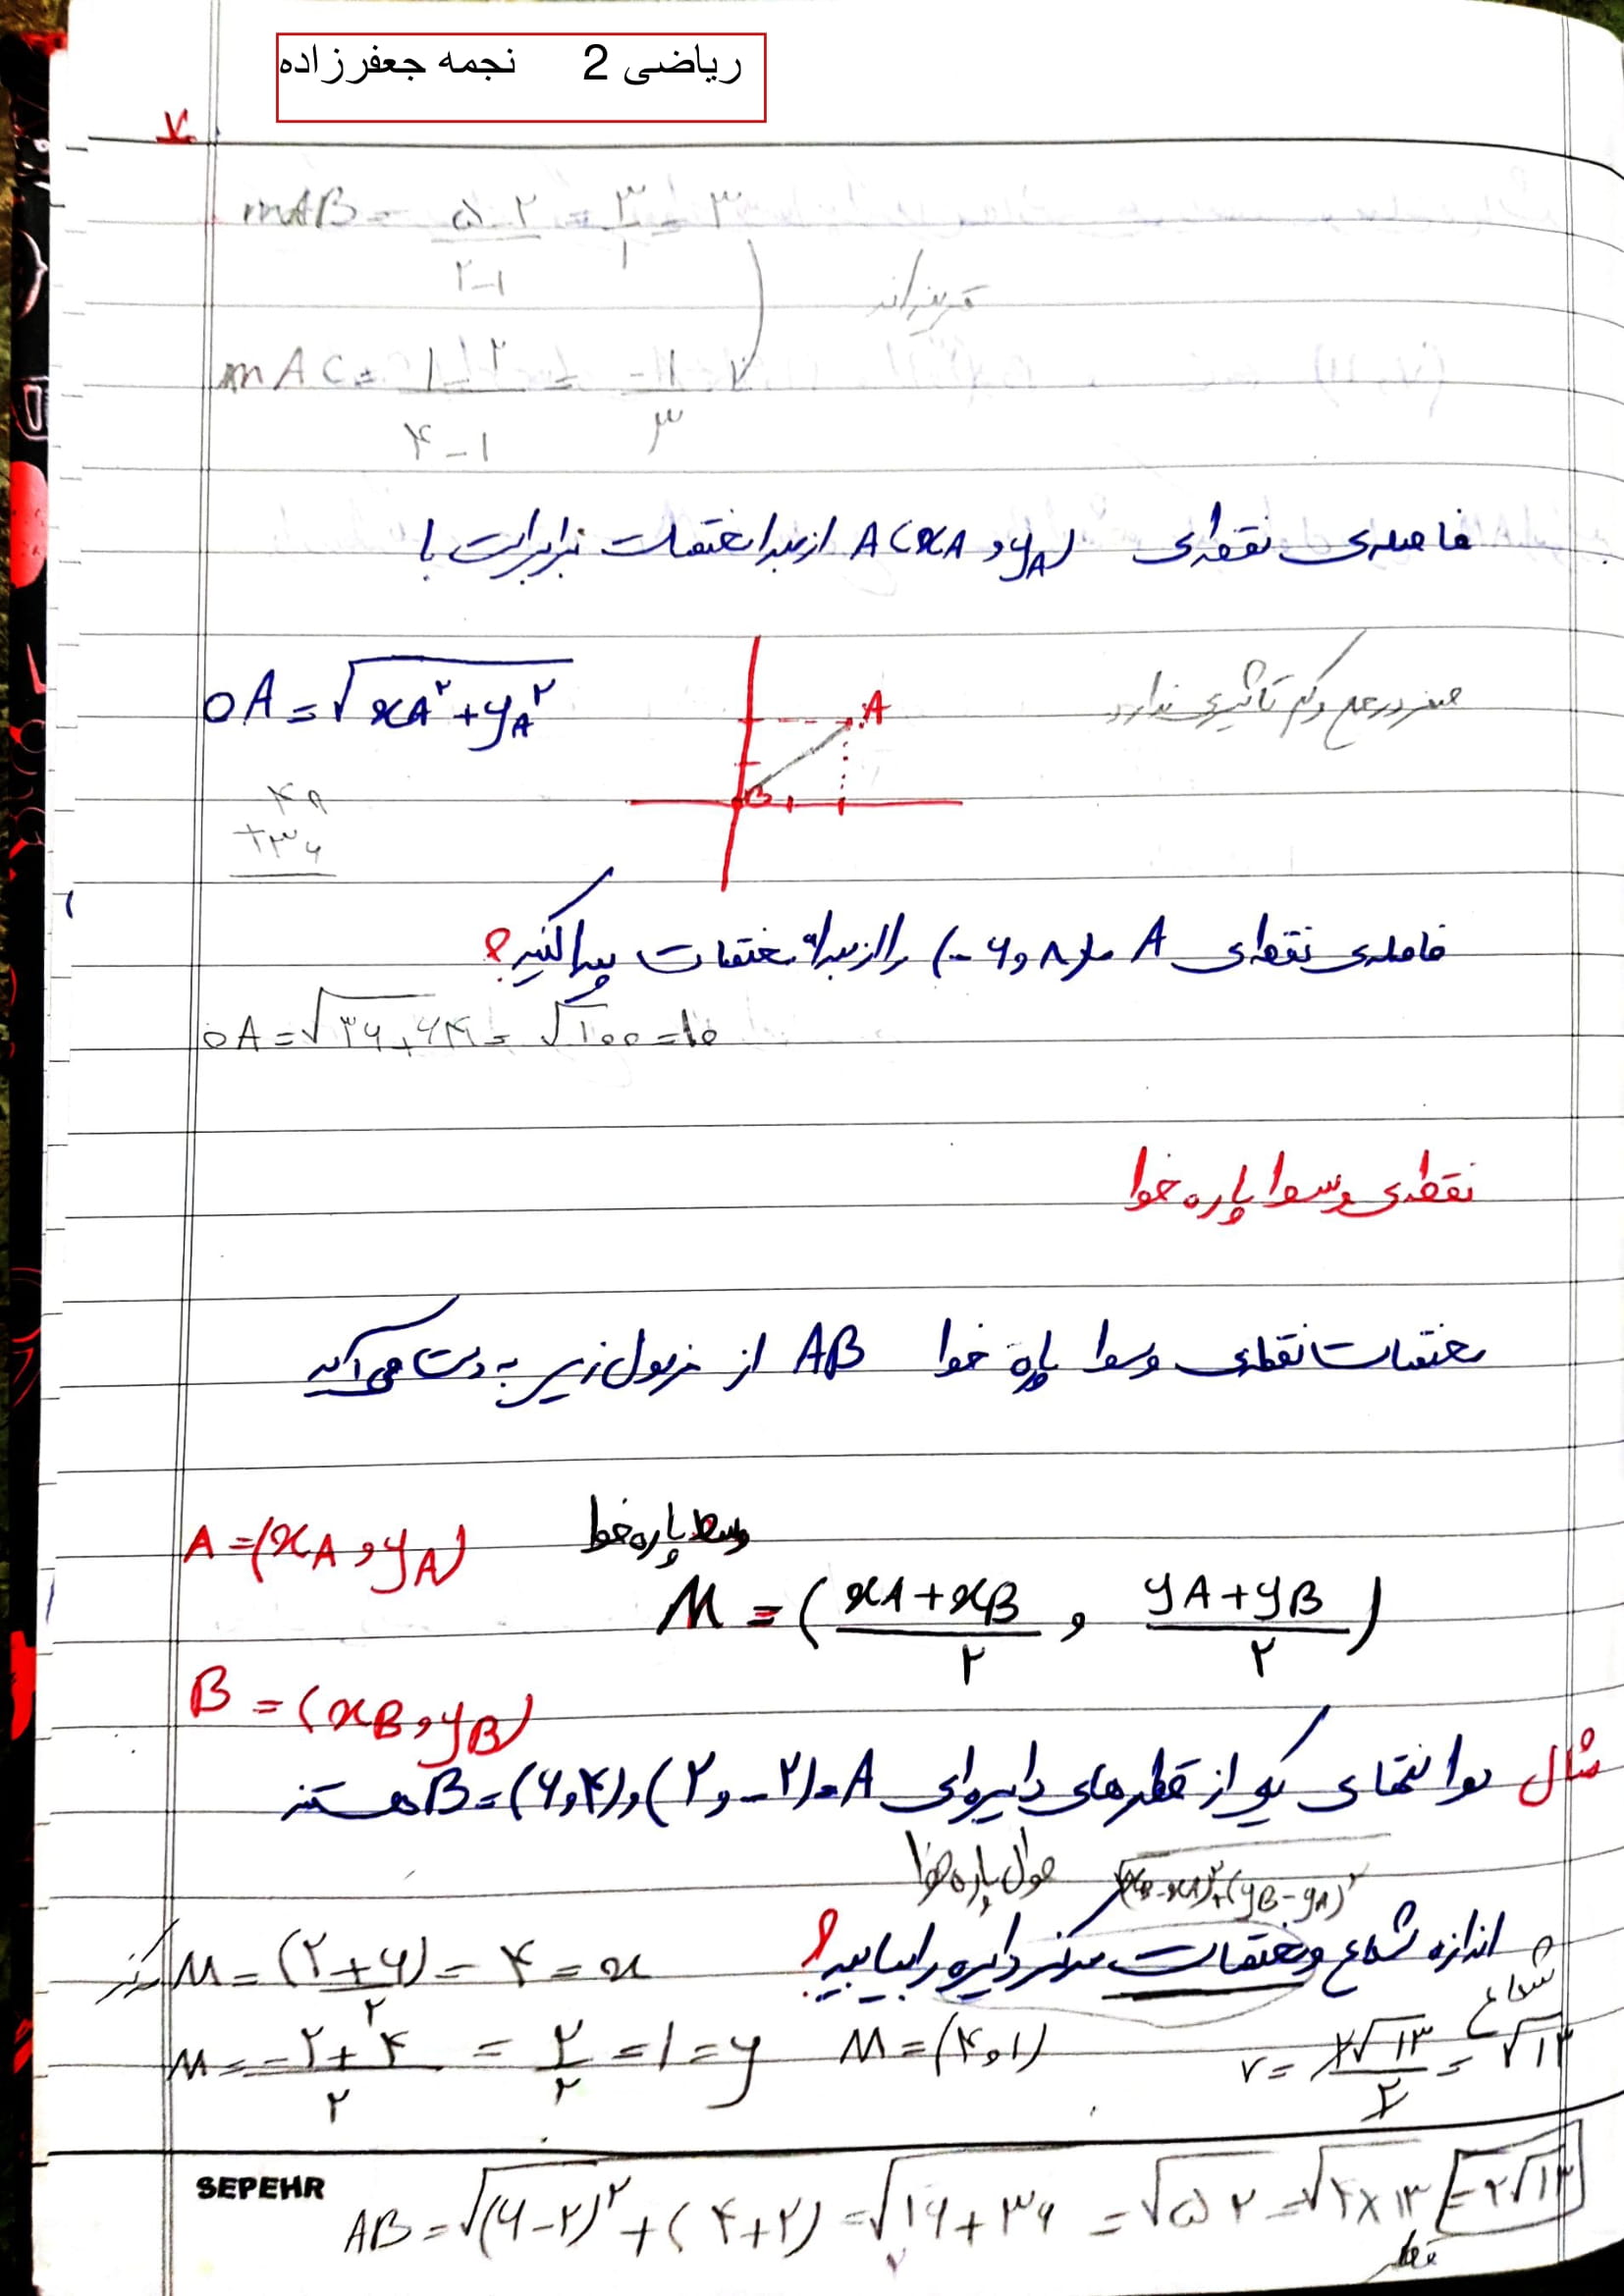 ریاضی 2 نجمه جعفرزاده
۷
mAB = (۵-۲)/(۲-۱) = ۳/۱ = ۳
قرینه‌اند
mAC = (۱-۲)/(۴-۱) = -۱/۳
فاصله‌ی نقطه‌ی A(xA و yA) از مبدا مختصات برابر است با
OA = √(xA² + yA²)
A
B
صفر در جمع و کم تاثیری ندارد
+۳۶
فاصله‌ی نقطه‌ی A (-۶ و ۸) را از مبدا مختصات پیدا کنید؟
OA = √(۳۶+۶۴) = √۱۰۰ = ۱۰
نقطه‌ی وسط پاره خط
مختصات نقطه‌ی وسط پاره خط AB از فرمول زیر به دست می‌آید
A = (xA و yA)
وسط پاره خط
M = ((xA+xB)/۲ و (yA+yB)/۲)
B = (xB و yB)
مثال دو انتهای یکی از قطرهای دایره‌ای A=(۲ و -۲) و B=(۶ و ۴) هستند
طول پاره خط √((xB-xA)²+(yB-yA)²)
اندازه شعاع و مختصات مرکز دایره را بیابید؟
مرکز M = (۲+۶)/۲ = ۴ = x
شعاع
M = (-۲+۴)/۲ = ۲/۲ = ۱ = y M = (۴ و ۱) r = ۲√۱۳/۲ = √۱۳
SEPEHR
AB = √(۶-۲)² + (۴+۲) = √۱۶+۳۶ = √۵۲ = √۴×۱۳ = ۲√۱۳
قطر